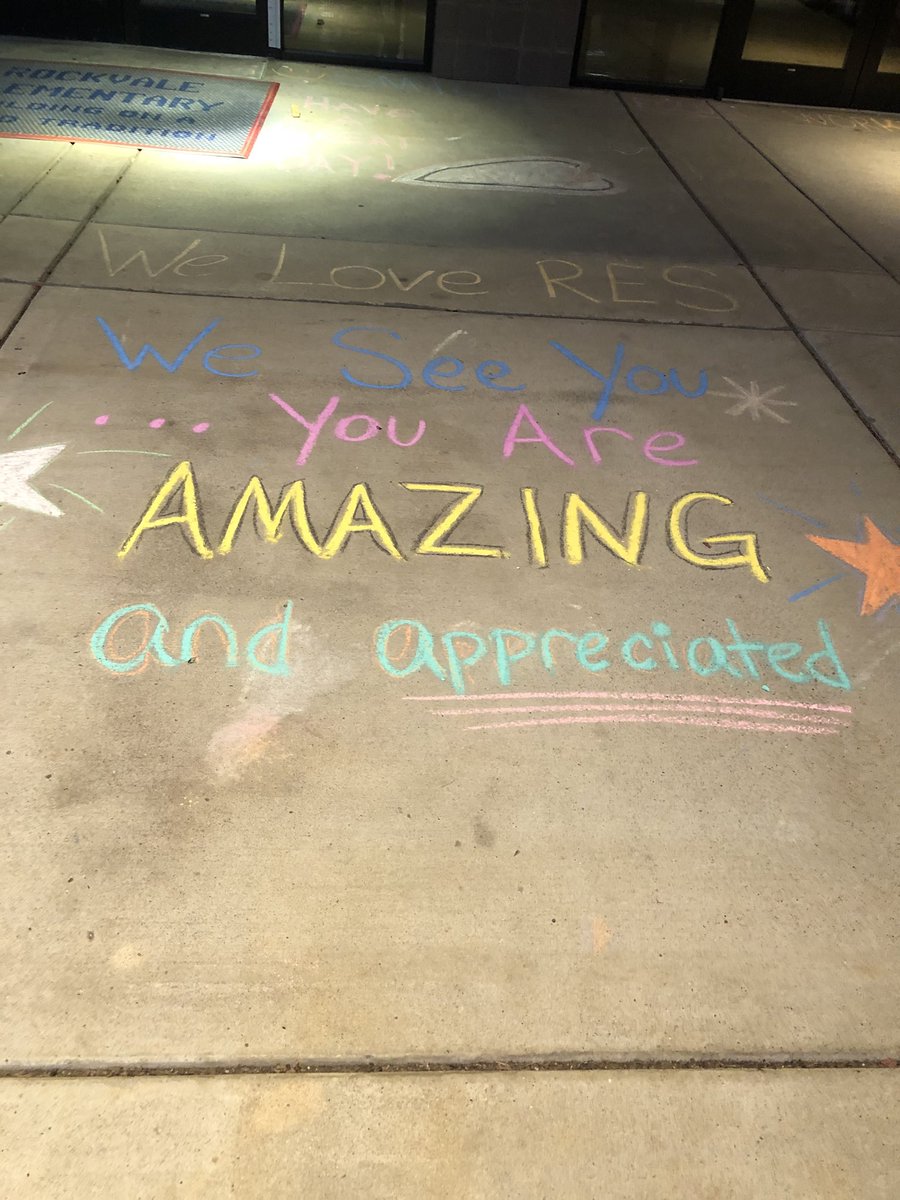 ROCKVALE
EMENTARY
ILDING ON A
TRADITION
HAVE
We Love RES
We See You
... You Are
AMAZING
and appreciated